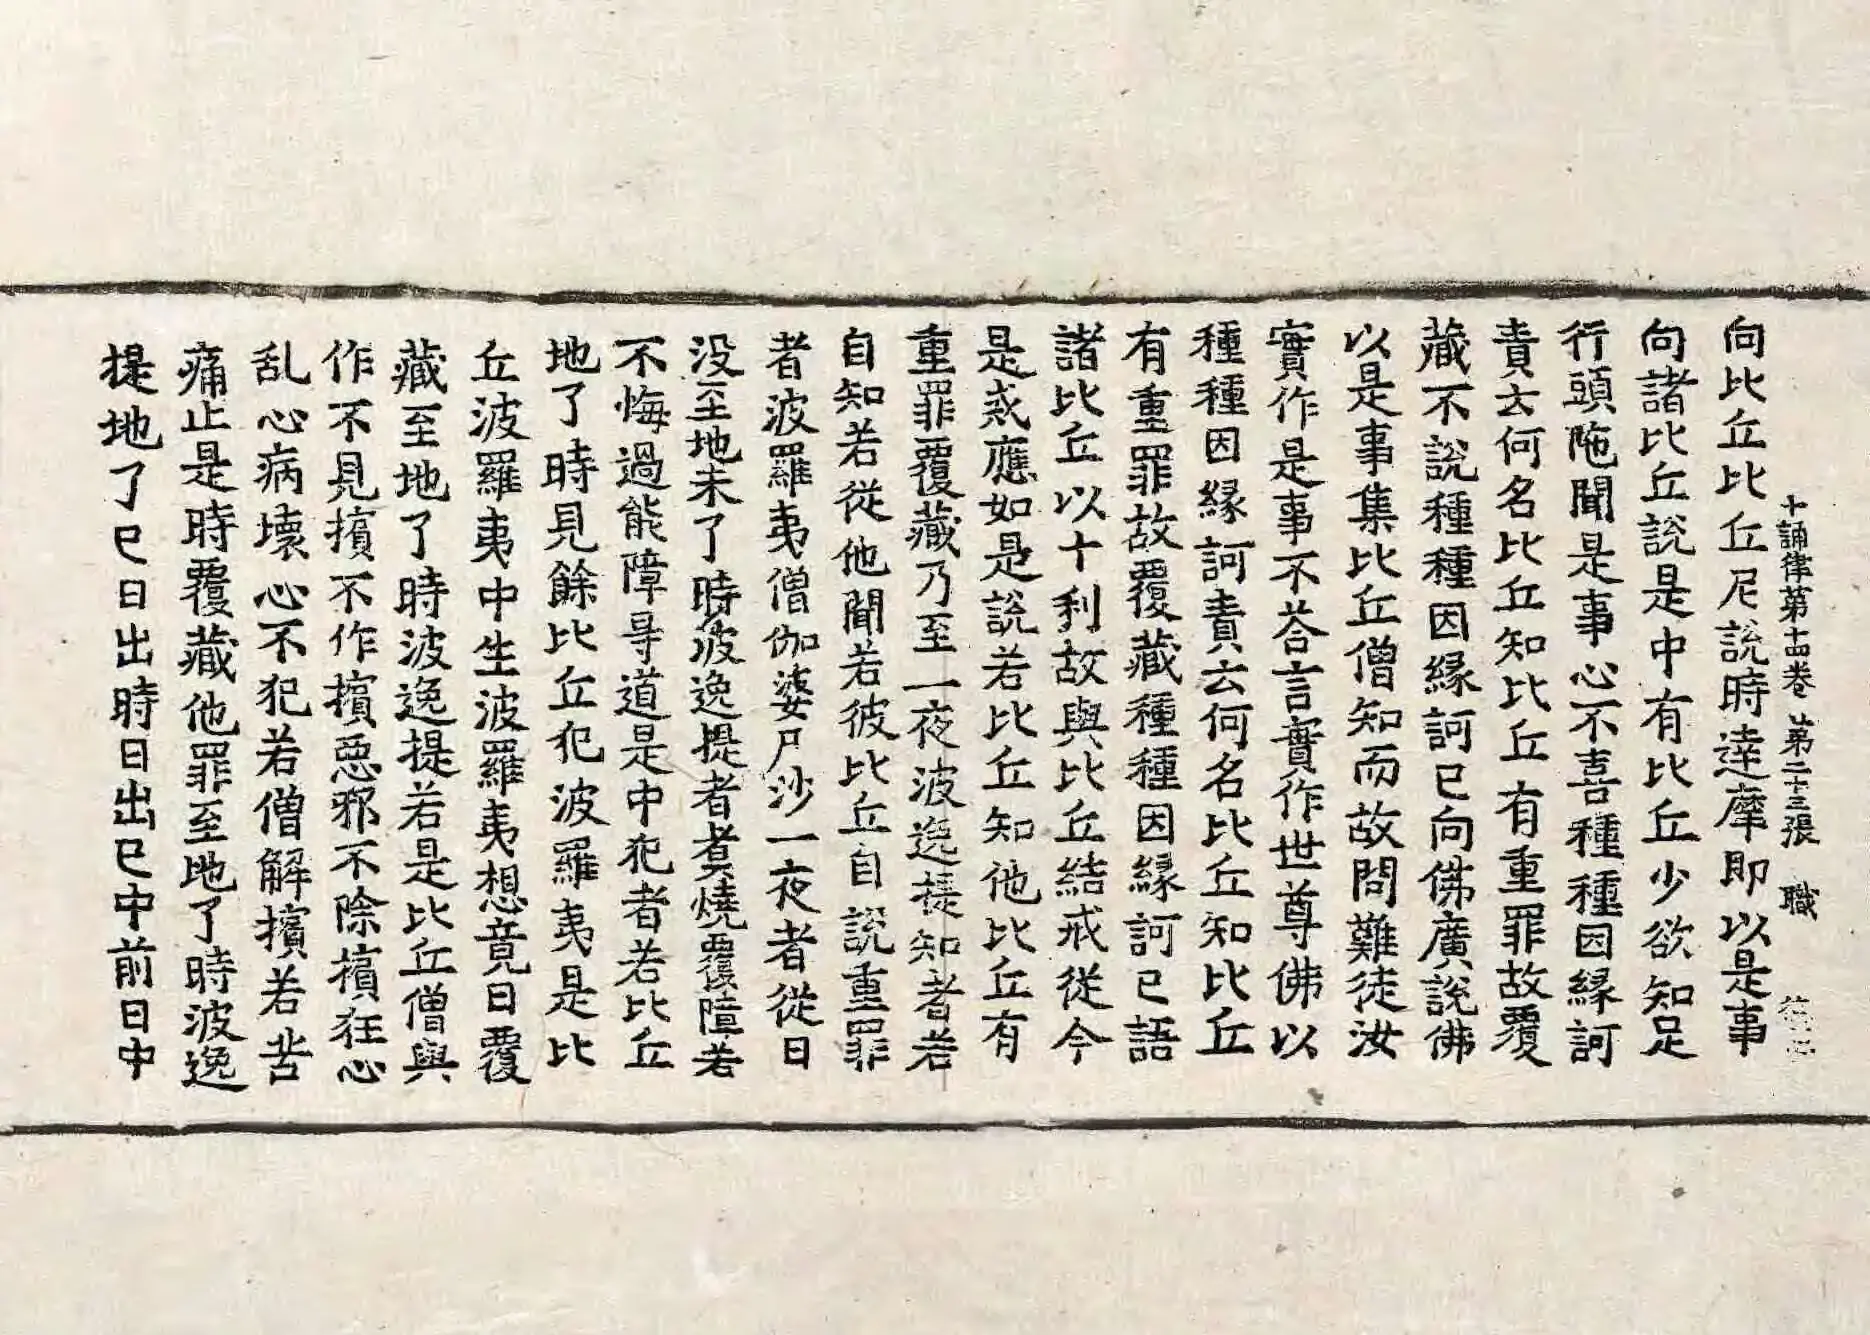 十誦律第十四卷 第二十三張 職
向比丘比丘尼說時達摩即以是事
向諸比丘說是中有比丘少欲知足
行頭陁聞是事心不喜種種因緣訶
責云何名比丘知比丘有重罪故覆
藏不說種種因緣訶已向佛廣說佛
以是事集比丘僧知而故問難徒汝
實作是事不荅言實作世尊佛以
種種因緣訶責云何名比丘知比丘
有重罪故覆藏種種因緣訶已語
諸比丘以十利故與比丘結戒從今
是戒應如是說若比丘知他比丘有
重罪覆藏乃至一夜波逸提知者若
自知若從他聞若彼比丘自說重罪
者波羅夷僧伽婆尸沙一夜者從日
没至地未了時波逸提者煑燒覆障若
不悔過能障㝵道是中犯者若比丘
地了時見餘比丘犯波羅夷是比
丘波羅夷中生波羅夷想竟日覆
藏至地了時波逸提若是比丘僧與
作不見擯不作擯惡邪不除擯狂心
乱心病壞心不犯若僧解擯若苦
痛止是時覆藏他罪至地了時波逸
提地了已日出時日出已中前日中